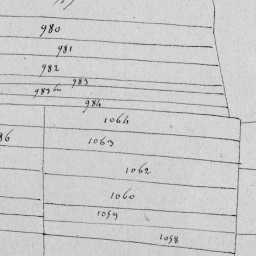 980
981
982
983
983bis
984
1064
86
1063
1062
1060
1059
1058